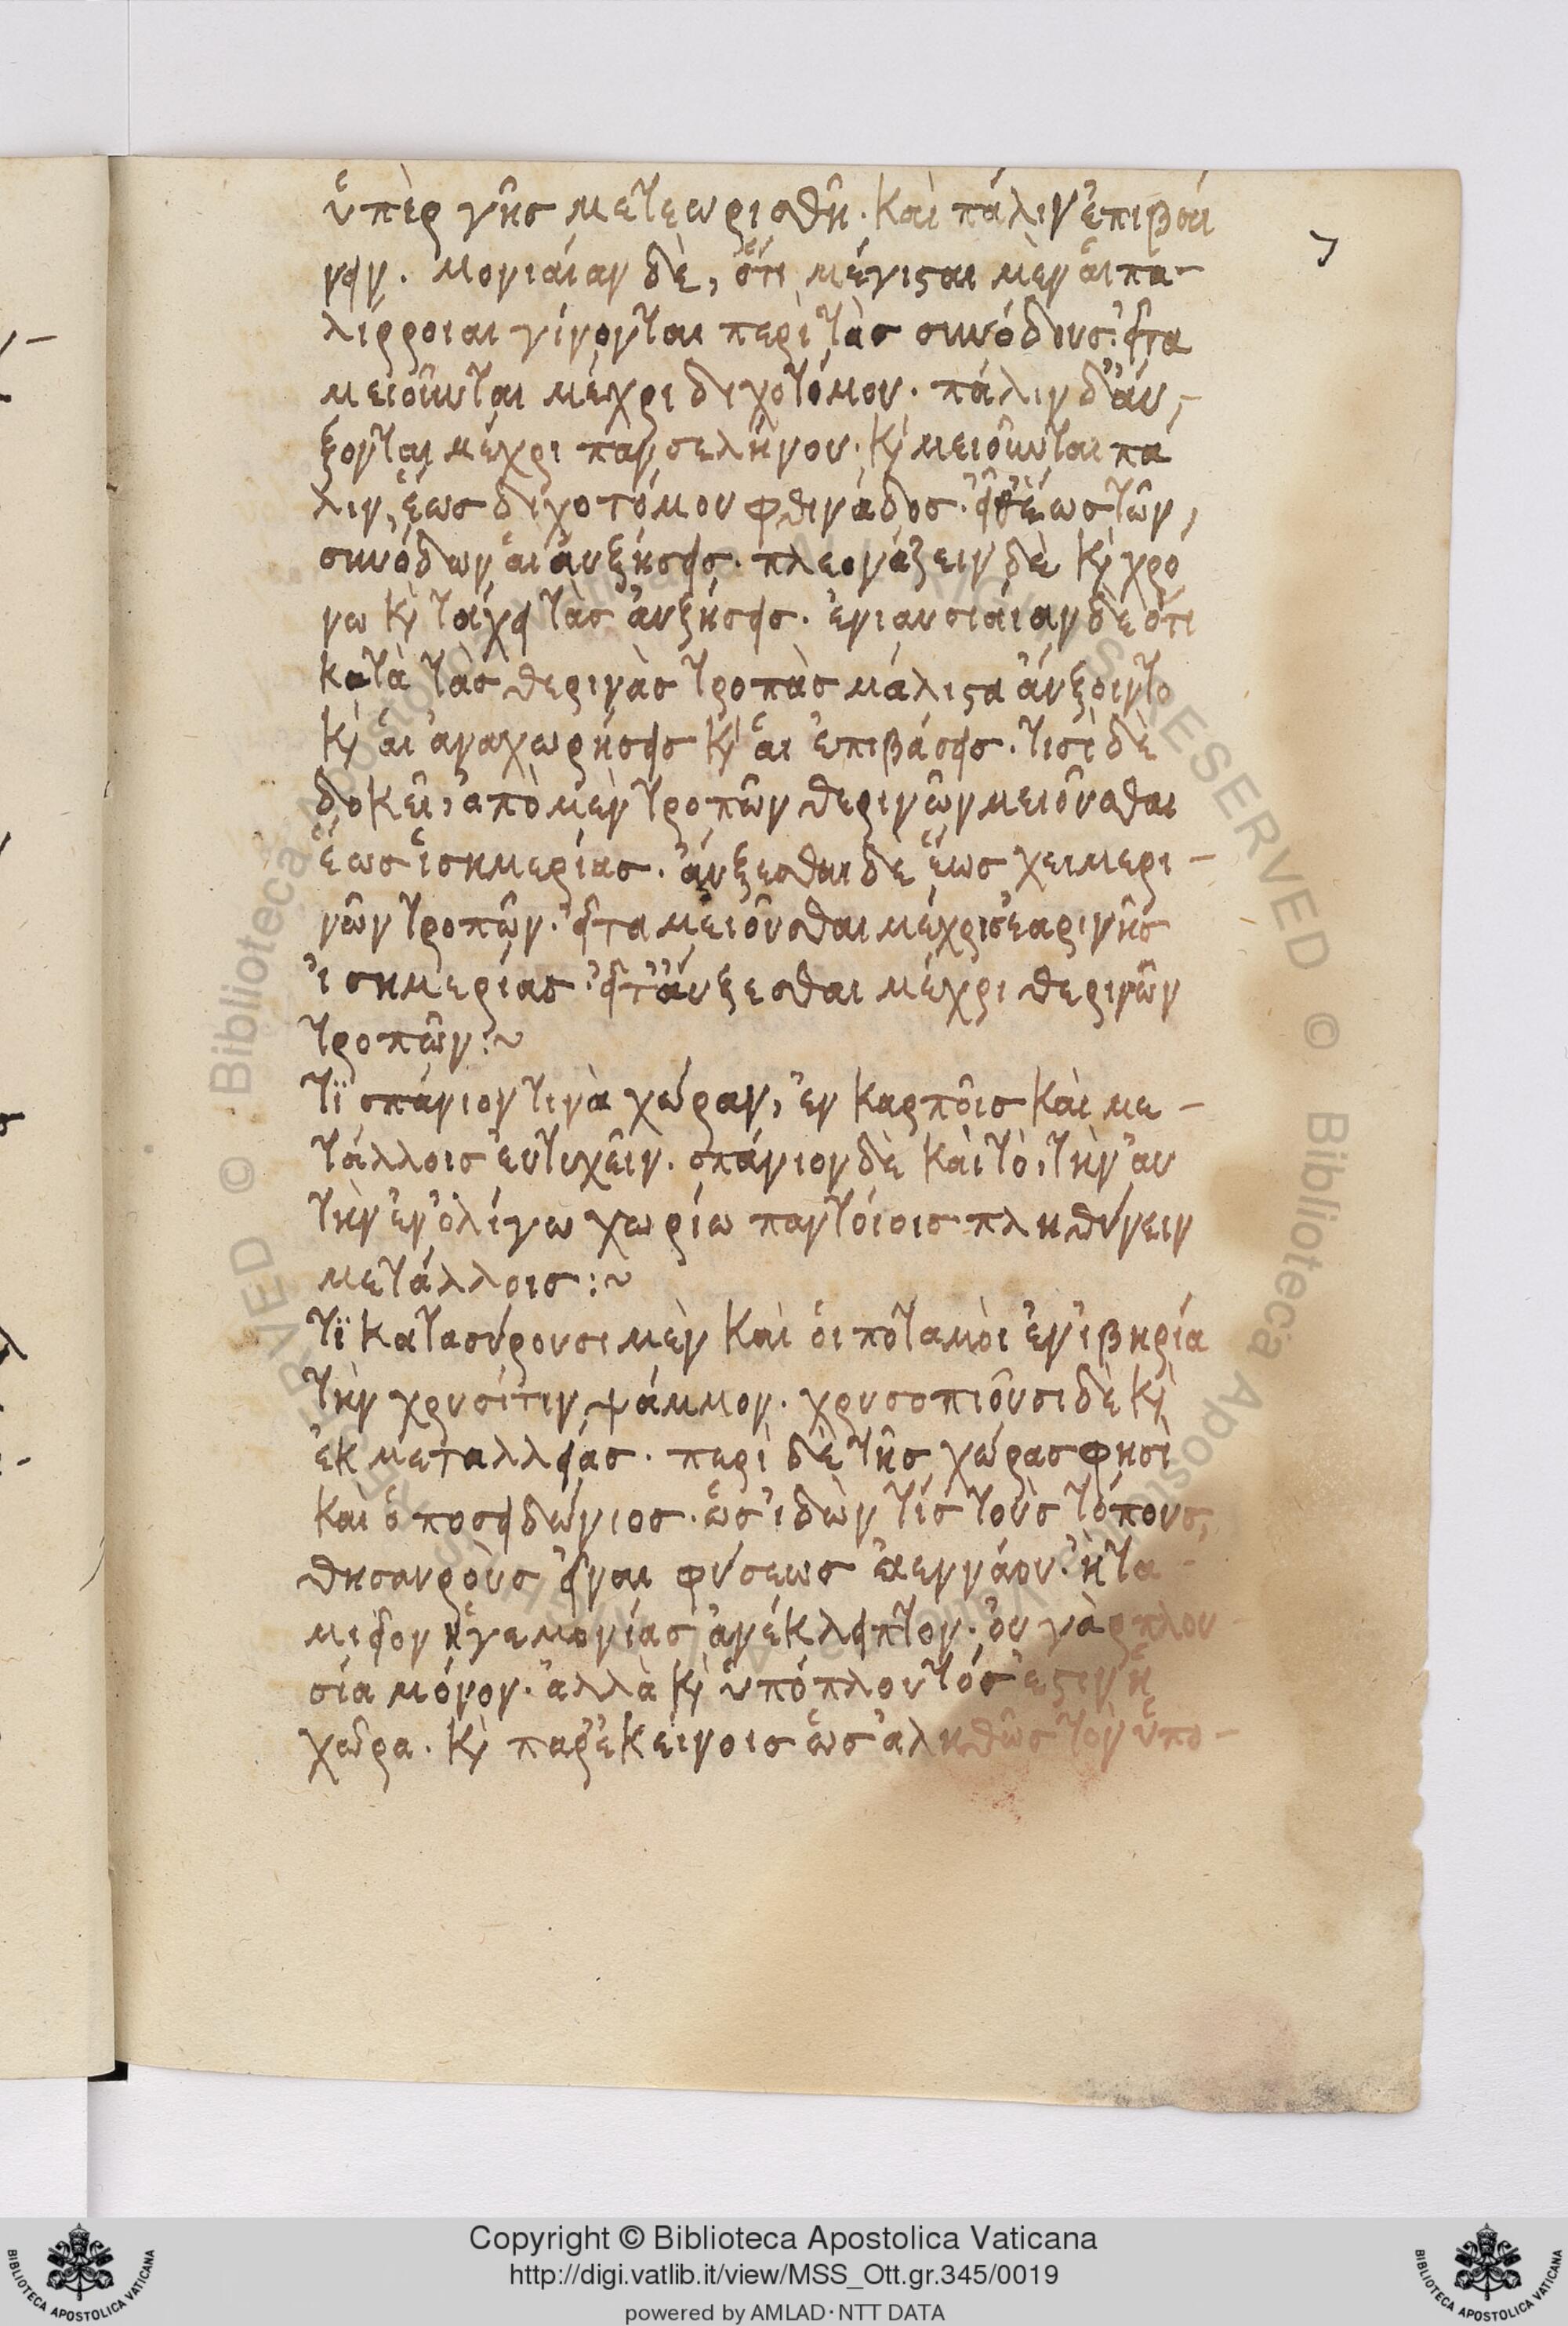 ὑπὲρ γῆς μετεωρισθῆ. καὶ πάλιν ἐπιβαί
νειν. μονιαίαν δὲ, ὅτι μέγισται μὲν αἱ πα-
λίρροιαι γίνονται περὶ τὰς συνόδους. εἶτα
μειοῦνται μέχρι διχοτόμου. πάλιν δ' αὔ-
ξονται μέχρι πανσελήνου. κ μειοῦνται πά
λιν, ἕως διχοτόμου φθινάδος. εἶθ' ἕως τῶν,
συνόδων αἱ αὐξήσεις. πλεονάζειν δὲ κ χρό
νω κ τάχει τὰς αὐξήσεις. ἐνιαυσιαίαν δὲ ὅτι
κατὰ τὰς θερινὰς τροπὰς μάλιστα αὔξοιντο
κ αἱ ἀναχωρήσεις κ αἱ ἐπιβάσεις. τισὶ δὲ
δοκεῖ, ἀπὸ μὲν τροπῶν θερινῶν μειοῦσθαι
ἕως ἰσημερίας. αὔξεσθαι δὲ ἕως χειμερι-
νῶν τροπῶν. εἶτα μειοῦσθαι μέχρις ἐαρινῆς
ἰσημερίας. εἶτ' αὔξεσθαι μέχρι θερινῶν
τροπῶν:~
τϊ σπάνιον τινὰ χώραν, ἐν καρποῖς καὶ με-
τάλλοις εὐτυχεῖν. σπάνιον δὲ καὶ τὸ, τὴν αὐ
τὴν ἐν ὀλίγω χωρίω παντοίοις πληθύνειν
μετάλλοις:~
τϊ κατασύρουσι μὲν καὶ οἱ ποταμοὶ ἐν ἰβηρία
τὴν χρυσίτιν ψάμμον. χρυσοπιοῦσι δὲ κ
ἐκ μεταλλείας. περὶ δὲ τῆς χώρας φησὶ
καὶ ὁ ποσειδώνιος. ὡς ἰδὼν τίς τοὺς τόπους,
θησαυροὺς εἶναι φύσεως ἀεννάου. ἢ τα-
μιεῖον ἡγεμονίας ἀνέκλειπτον. οὐ γὰρ πλου
σία μόνον. ἀλλὰ κ ὑπόπλουτός ἐστιν ἡ
χώρα. κ παρ' ἐκείνοις ὡς ἀληθῶς τὸν ὑπο-
Copyright © Biblioteca Apostolica Vaticana
http://digi.vatlib.it/view/MSS_Ott.gr.345/0019
powered by AMLAD·NTT DATA